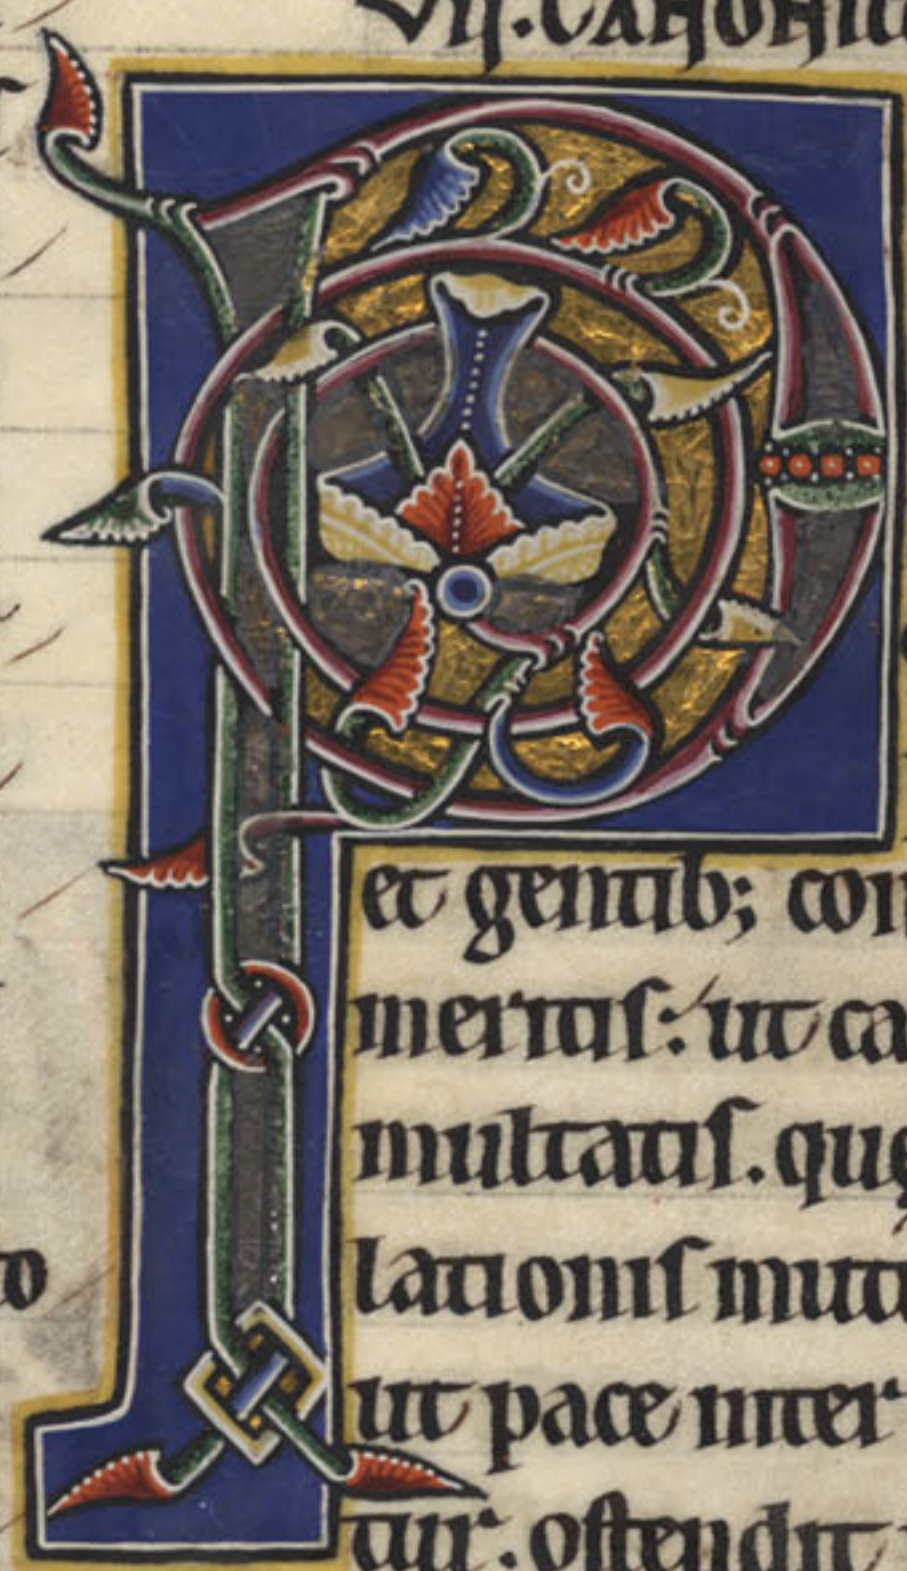 VII. CANONIC
P
et gentib; con
meritis: ut ca
multatis. quę
lationis mutu
ut pace inter
tur. ostendit
to